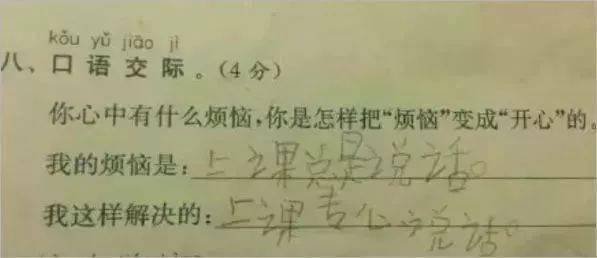 kǒu yǔ jiāo jì
八、口语交际。(4分)
你心中有什么烦恼,你是怎样把“烦恼”变成“开心”的。
我的烦恼是:上课总是说话。
我这样解决的:上课专心说话。